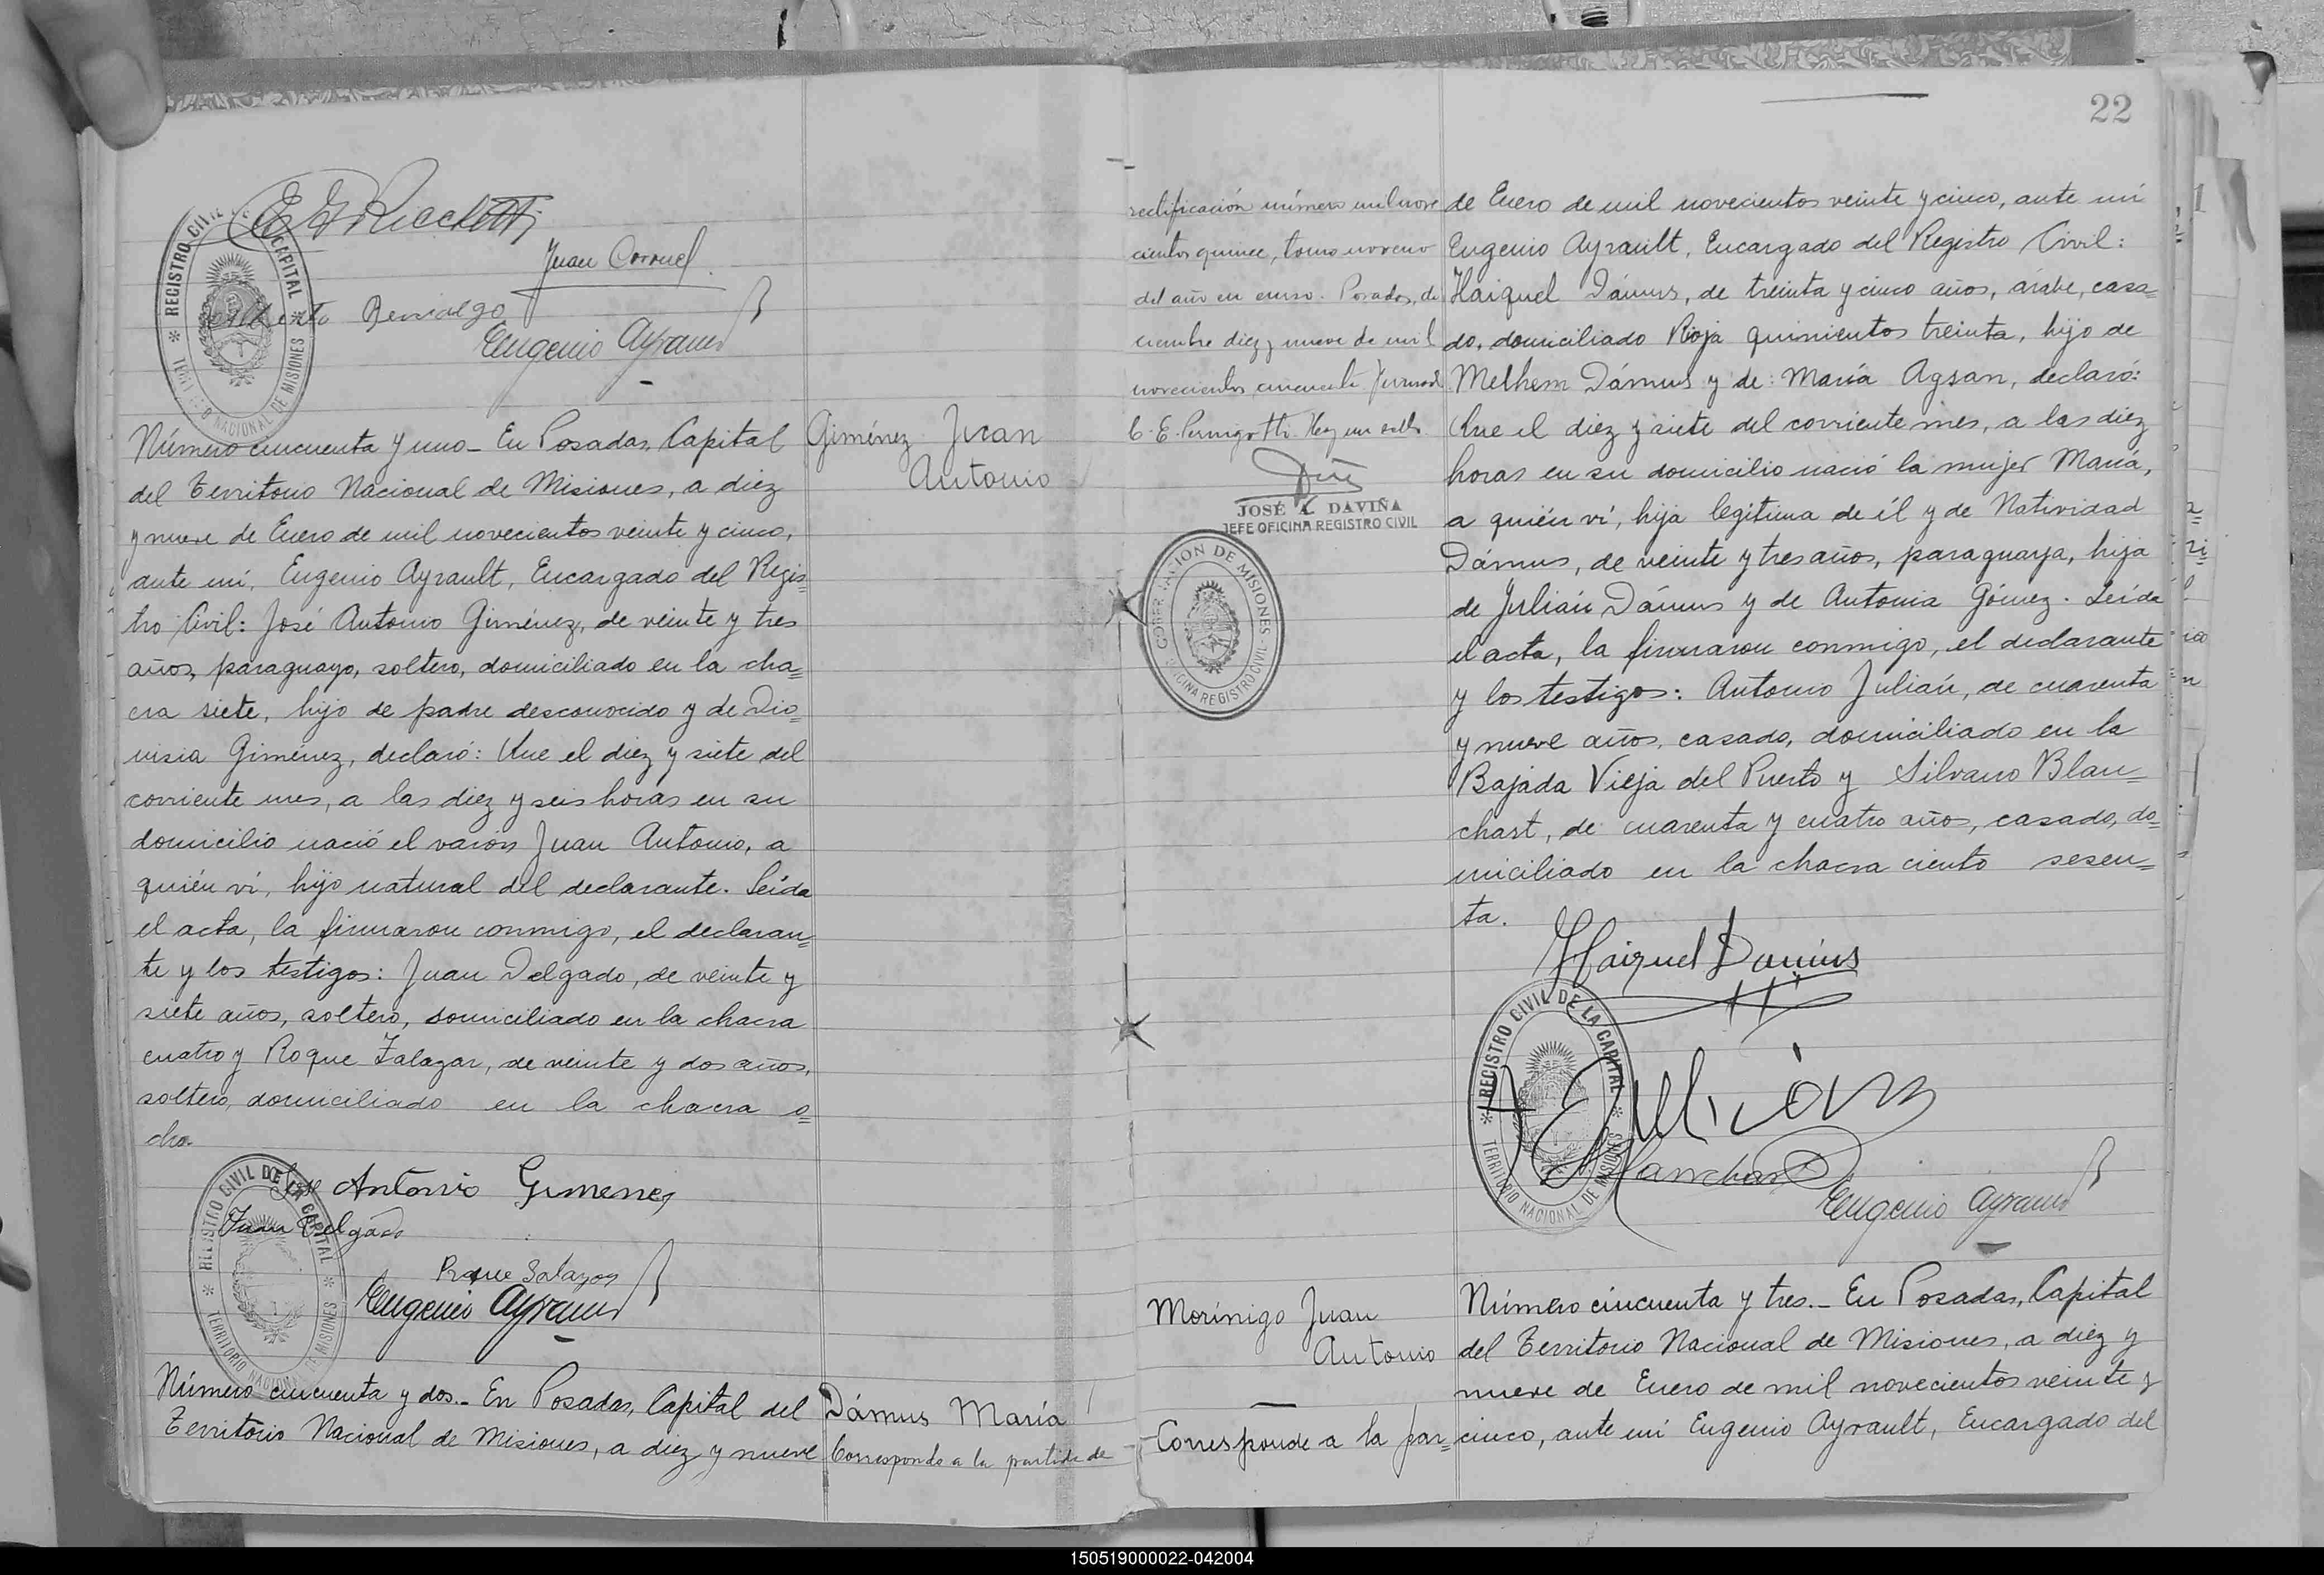 E G Ricchetti
Juan Coronel
Eugenio Ayrault
REGISTRO CIVIL DE LA CAPITAL
TERRITORIO NACIONAL DE MISIONES
Número cincuenta y uno_ En Posadas, Capital
del Territorio Nacional de Misiones, a diez
y nueve de Enero de mil novecientos veinte y cinco,
ante mí, Eugenio Ayrault, Encargado del Regis=
tro Civil: José Antonio Giménez, de veinte y tres
años, paraguayo, soltero, domiciliado en la cha=
cra siete, hijo de padre desconocido y de Dio=
nisia Giménez, declaró: Que el diez y siete del
corriente mes, a las diez y seis horas en su
domicilio nació el varón Juan Antonio, a
quién ví, hijo natural del declarante. Leída
el acta, la firmaron conmigo, el declaran=
te y los testigos: Juan Delgado, de veinte y
siete años, soltero, domiciliado en la chacra
cuatro y Roque Zalazar, de veinte y dos años,
soltero, domiciliado en la chacra o=
cho.
Giménez Juan
Antonio
José Antonio Gimenez
Juan Delgado
Roque Salazar
Eugenio Ayrault
REGISTRO CIVIL DE LA CAPITAL
TERRITORIO NACIONAL DE MISIONES
Número cincuenta y dos._ En Posadas, Capital del
Territorio Nacional de Misiones, a diez y nueve
Dámus María
Corresponde a la partida de
22
rectificación número mil nove
cientos quince, tomo noveno
del año en curso. Posadas, di
ciembre diez y nueve de mil
novecientos cincuenta. Firmado
C. E. Pernigotti. Hay un sello.
JOSÉ A. DAVIÑA
JEFE OFICINA REGISTRO CIVIL
GOBERNACION DE MISIONES
OFICINA REGISTRO CIVIL
de Enero de mil novecientos veinte y cinco, ante mí
Eugenio Ayrault, Encargado del Registro Civil:
Haiquel Dámus, de treinta y cinco años, árabe, casa=
do, domiciliado Rioja quinientos treinta, hijo de
Melhem Dámus y de María Agsan, declaró:
Que el diez y siete del corriente mes, a las diez
horas en su domicilio nació la mujer María,
a quién ví, hija legítima de él y de Natividad
Dámus, de veinte y tres años, paraguaya, hija
de Julián Dámus y de Antonia Gómez. Leída
el acta, la firmaron conmigo, el declarante
y los testigos: Antonio Julián, de cuarenta
y nueve años, casado, domiciliado en la
Bajada Vieja del Puerto y Silvano Blan=
chart, de cuarenta y cuatro años, casado, do=
miciliado en la chacra ciento sesen=
ta.
Haiquel Damus
A Julián
REGISTRO CIVIL DE LA CAPITAL
TERRITORIO NACIONAL DE MISIONES
Blanchart
Eugenio Ayrault
Morínigo Juan
Antonio
Corresponde a la par=
Número cincuenta y tres._ En Posadas, Capital
del Territorio Nacional de Misiones, a diez y
nueve de Enero de mil novecientos veinte y
cinco, ante mí Eugenio Ayrault, Encargado del
150519000022-042004